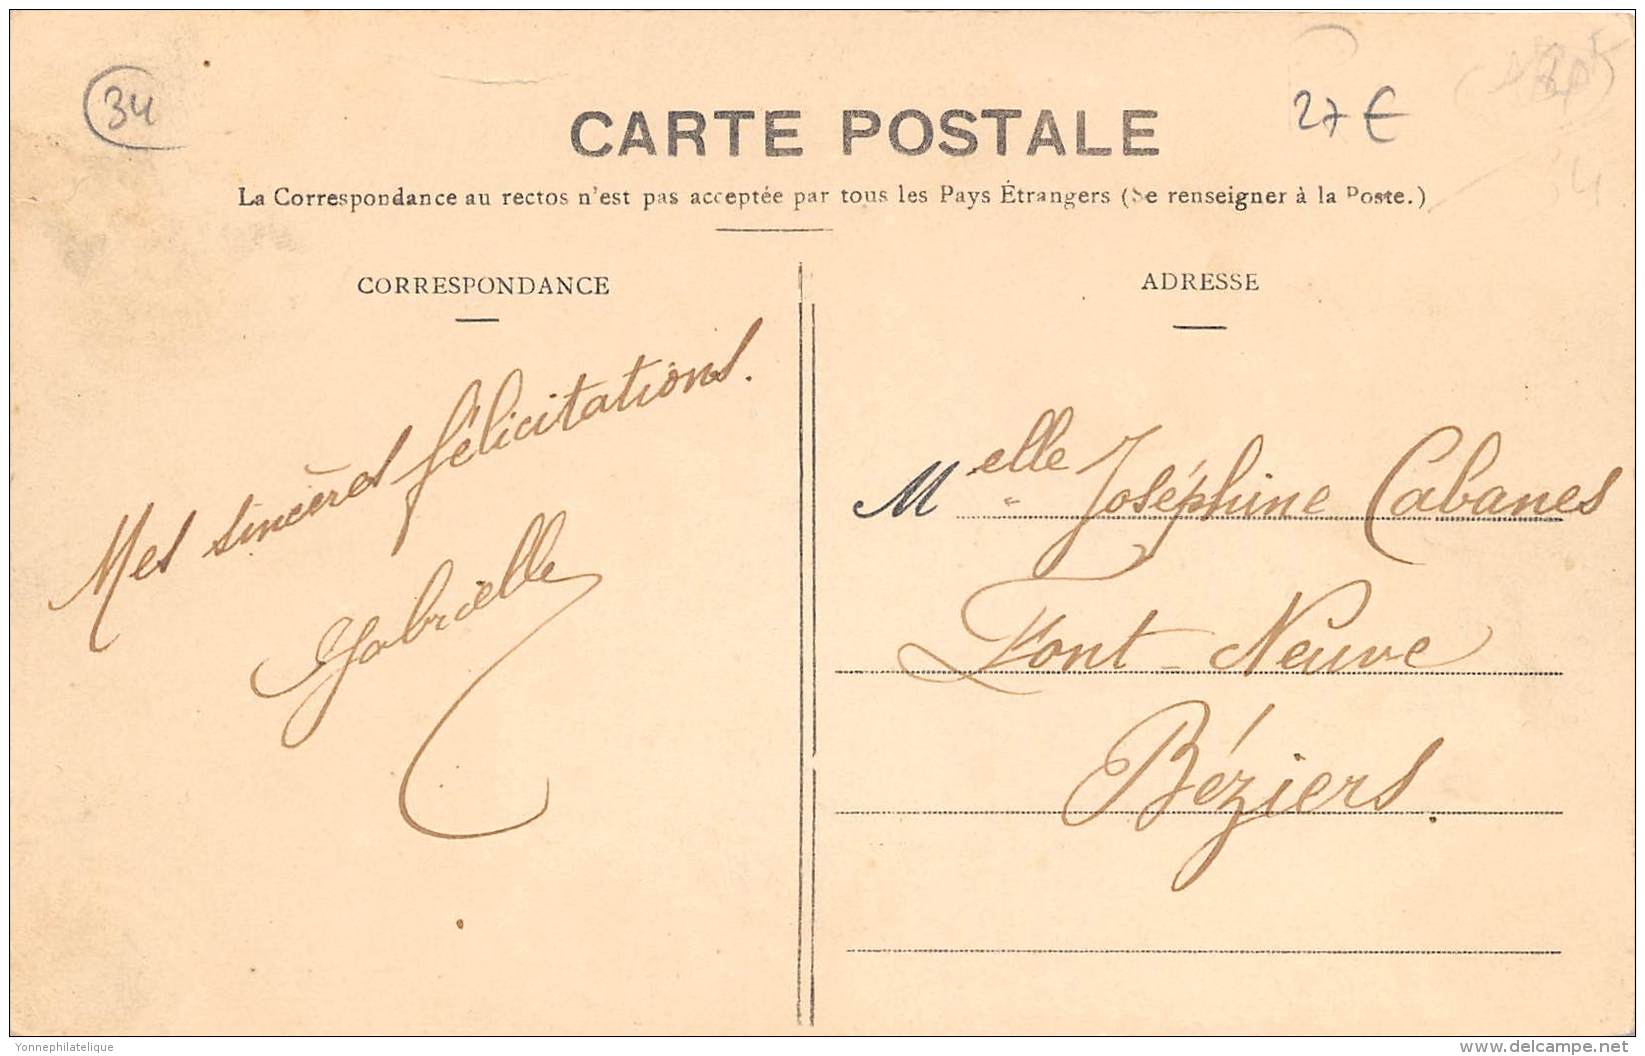 34
27 €
CARTE POSTALE
La Correspondance au rectos n'est pas acceptée par tous les Pays Étrangers (Se renseigner à la Poste.)
CORRESPONDANCE
Mes sincères félicitations.
Gabrielle
ADRESSE
Melle Joséphine Cabanes
Font-Neuve
Béziers.
34
Yonnephilatelique
delcampe.net